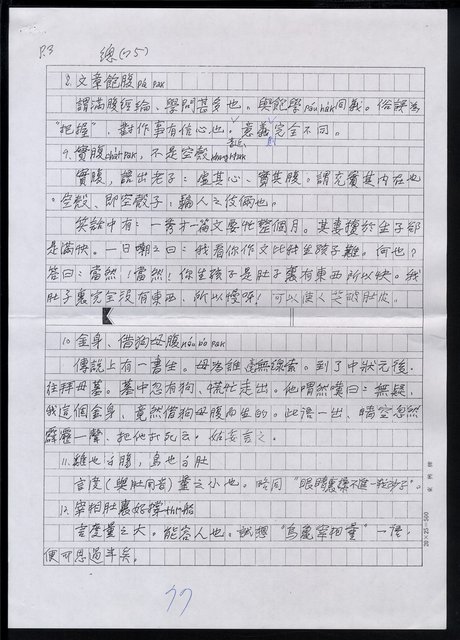 P.3 總(75)
8. 文章飽腹pá pak
謂滿腹經綸、學問甚多也。與飽學páu hak同義。俗誤為
"把握"、對作事有信心也。意義完全不同。
則
9. 實腹cha̍t pak,不是空殼khang khak
實腹,語出老子:虛其心、實其腹。謂充實其內在也
。空殼、即空殼子;騙人之伎倆也。
笑話中有:一秀才一篇文要忙整個月。其妻
是滿快。一日嘲之曰:我看你作文比我生孩子難。何也?
答曰:當然!當然!你生孩子是肚子裏有東西所以快。我
肚子裏完全沒有東西、所以慢呀!可以使人笑破肚皮。
10. 金身、借狗母腹káu bó pak
傳說上有一書生。母為誰毫無線索。到了中狀元後、
往拜母墓。墓中忽有狗、慌忙走出。他喟然嘆曰:無疑、
我這個金身、竟然借狗母腹而生的。此語一出、晴空忽然
霹靂一聲、把他打死云。姑妄言之。
11. 雞也々腸,鳥也々肚
言度(與肚同音)量之小也。略同"眼睛裏揉不進一粒沙子"。
12. 宰相肚裏好撐thiⁿ船
言度量之大。能容人也。試想"烏龜宰相量"一語,
便可思過半矣。
77
25×20=500